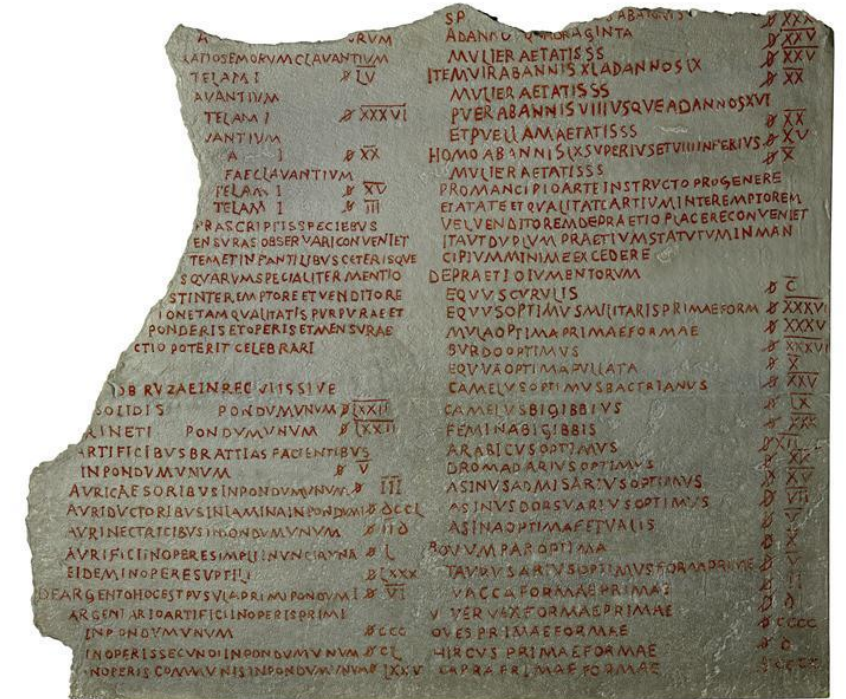 VRVM
RATIOSEMORVM CLAVANTIVM
TELAM I ꟸ LV
AVANTIVM
TELAM I ꟸ XXXVI
VANTIVM
A I ꟸ XX
FAECLAVANTIVM
TELAM I ꟸ XV
TELAM I ꟸ III
PRASCRIPTIS SPECIEBVS
ENSVRAS OBSERVARI CONVENIET
TEMET IN PANTILIBVS CETERISQVE
SQVARVM SPECIALITER MENTIO
ST INTER EMPTORE ET VENDITORE
IONETAM QVALITATIS PVRPVRAE ET
PONDERIS ET OPERIS ET MENSVRAE
CTIO POTERIT CELEBRARI
OBRVZAE IN REC
SOLIDIS PONDVM VNVM ꟸ LXXII
RINETI PONDVM VNVM ꟸ LXXII
ARTIFICIBVS BRATTIAS FACIENTIBVS
IN PONDVM VNVM ꟸ V
AVRICAESORIBVS IN PONDVM VNVM ꟸ III
AVRIDVCTORIBVS IN LAMINA IN PONDVM I
AVRINECTRICIBVS IN PONDVM VNVM
AVRIFICI IN OPERE SIMPLI IN VNCIA VNA ꟸ L
EIDEM IN OPERE SVPTILI ꟸ LXXX
DE ARGENTO HOC EST PVSVLA PRIMI PONDVM I ꟸ VI
ARGENTARIO ARTIFICI IN OPERIS PRIMI
IN PONDVM VNVM ꟸ CCC
IN OPERIS SECVNDI IN PONDVM VNVM ꟸ CL
INOPERIS COMMVNIS IN PONDVM VNVM ꟸ LXXV
SP
ADANNV QVADRAGINTA ꟸ XXV
MVLIER AETATIS SS ꟸ XXV
ITEM VIR AB ANNIS XL AD ANNOS LX ꟸ XX
MVLIER AETATIS SS
PVER AB ANNIS VIII VSQVE AD ANNOS XVI
ET PVELLAM AETATIS SS ꟸ XX
HOMO AB ANNIS LX SVPERIVS ET VIII INFERIVS ꟸ XV
MVLIER AETATIS SS ꟸ X
PRO MANCIPIO ARTE INSTRVCTO PRO GENERE
ET AETATE ET QVALITATE ARTIVM INTER EMPTOREM
VEL VENDITOREM DE PRAETIO PLACERE CONVENIET
ITA VT DVPLVM PRAETIVM STATVTVM IN MAN
CIPIVM MINIME EXCEDERE
DE PRAETIO IVMENTORVM
EQVVS CVRVLIS ꟸ C
EQVVS OPTIMVS MILITARIS PRIMAE FORM ꟸ XXXVI
MVLA OPTIMA PRIMAE FORMAE ꟸ XXXV
BVRDO OPTIMVS ꟸ XXXVI
EQVVA OPTIMA PVLLATA ꟸ X
CAMELVS OPTIMVS BACTRIANVS ꟸ XXV
CAMELVS BIGIBBIVS ꟸ LX
FEMINA BIGIBBIS ꟸ XXX
ARABICVS OPTIMVS ꟸ XII
DROMADARIVS OPTIMVS
ASINVS ADMISARIVS OPTIMVS ꟸ XV
ASINVS DORSVARIVS OPTIMVS ꟸ VII
ASINA OPTIMA FETVALIS
BOVVM PAR OPTIMA
TAVRVS ARIVS OPTIMVS FORM PRIME
VACCA FORMAE PRIMAE
VERVEX FORMAE PRIMAE
OVES PRIMAE FORMAE ꟸ CCCC
HIRCVS PRIMAE FORMAE
CAPRA PRIMAE FORMAE